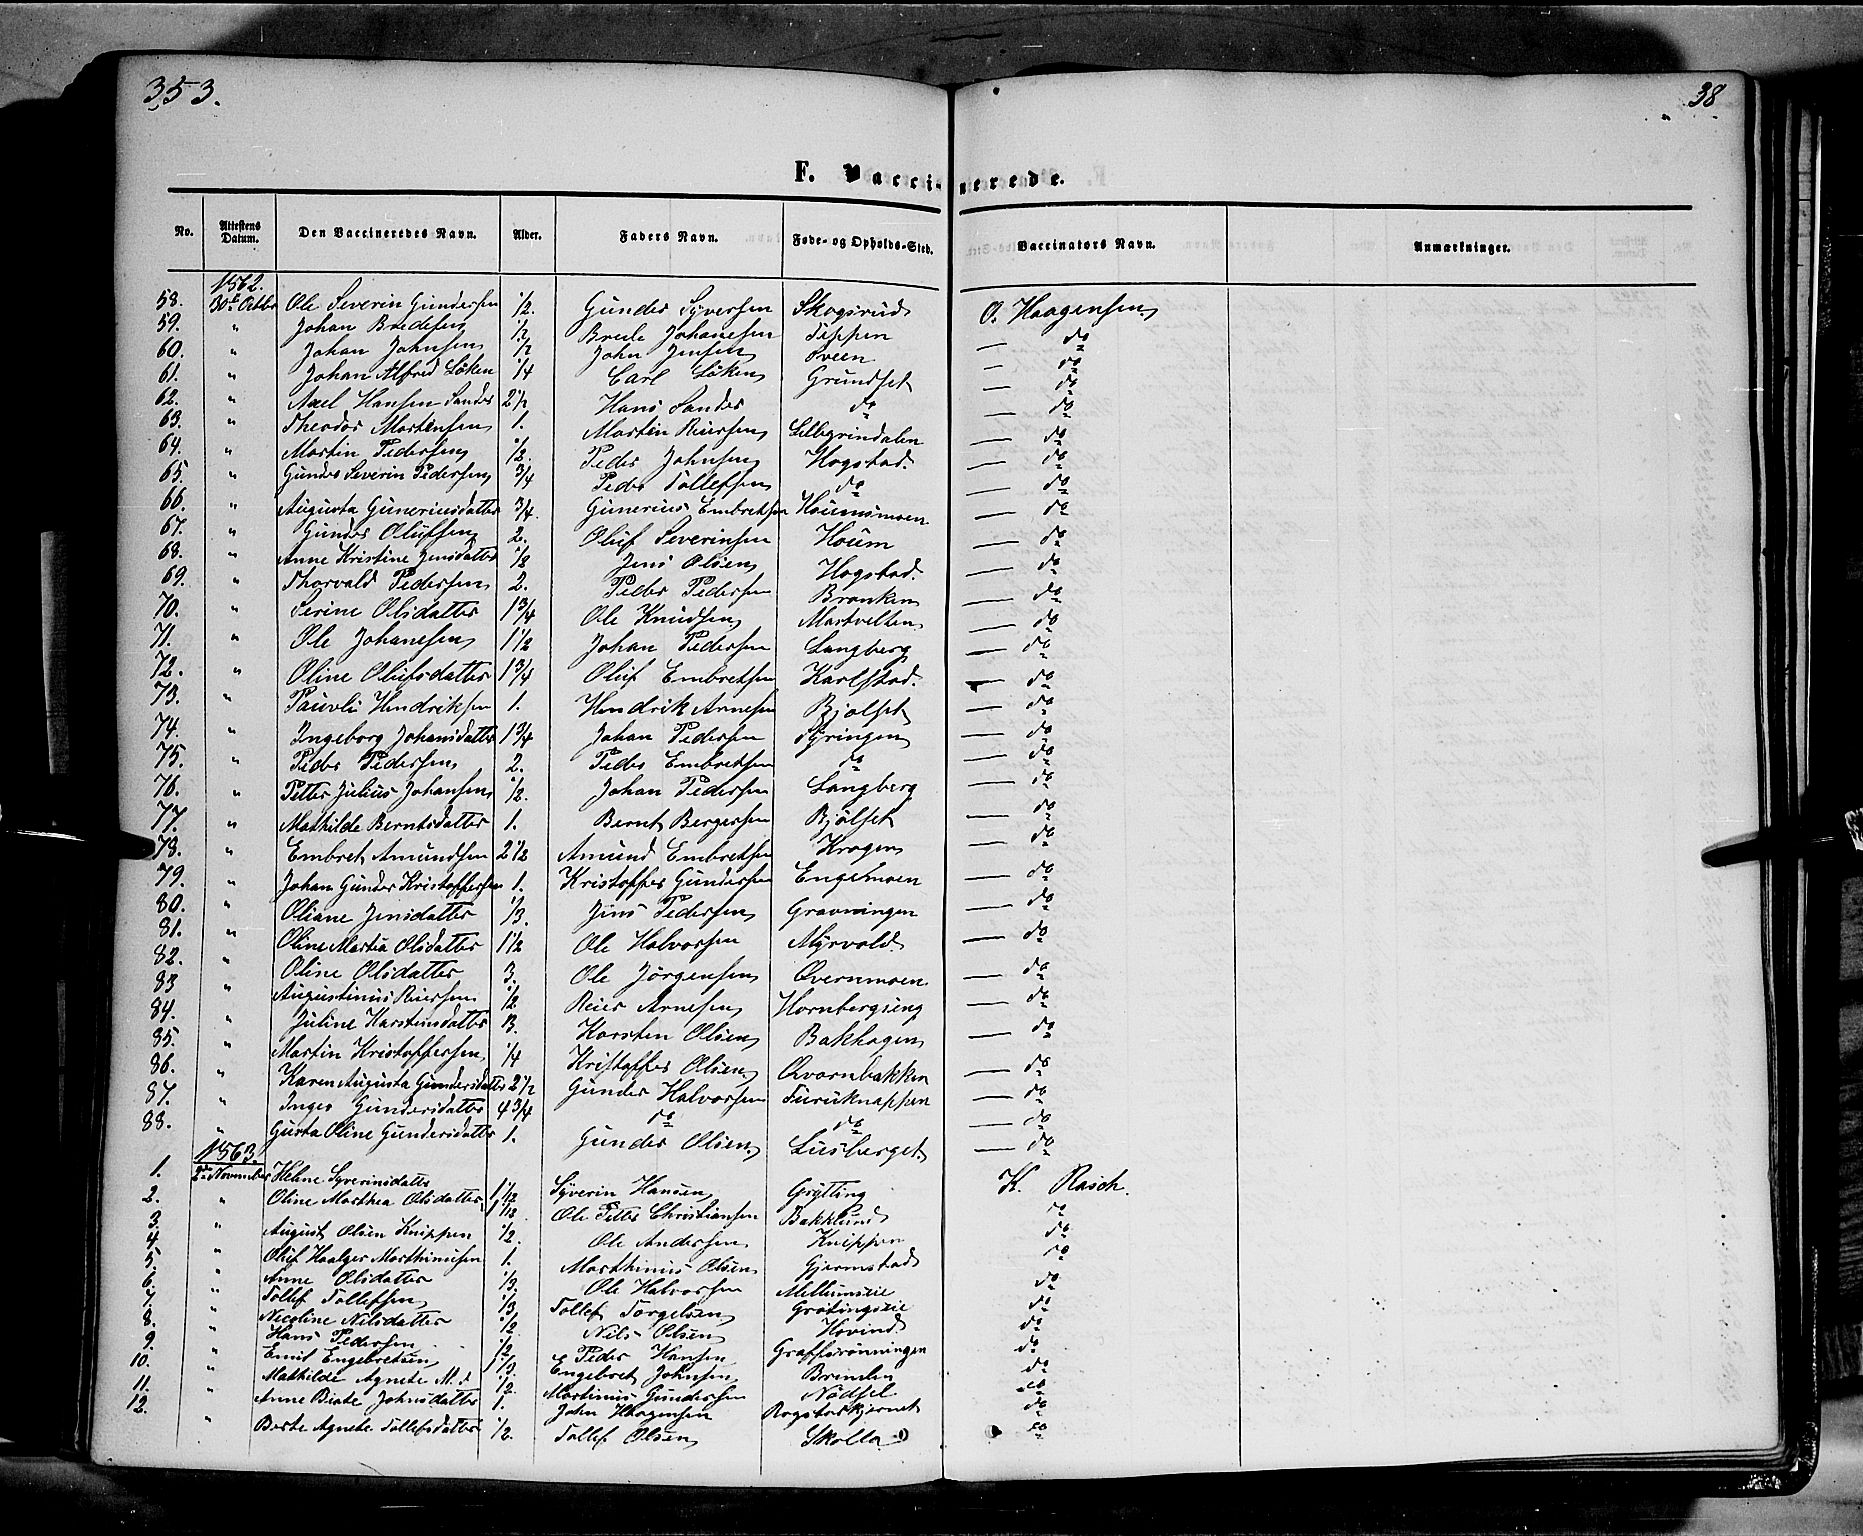 353.
38
F. Vaccinerede.
No. Attestens Datum. Den Vaccineredes Navn. Alder. Faders Navn. Føde- og Opholds-Sted. Vaccinators Navn. Anmærkninger.
1862.
58. 30te Octbr Ole Severin Gundersen 1/2. Gunder Syversen Skogsrud O. Haagensen
59. " Johan Bredesen 1/2 Brede Johanesen Teppen — do
60. " Johan Johnsen 1/2 John Jensen Sveen — do
61. " Johan Alfred Löken 1/4 Carl Löken Grundset — do
62. " Axel Hansen Sander 2 1/2 Hans Sander do — do
63. " Theodor Martinsen 1. Martin Reiersen Lillegrindalen — do
64. " Martin Pedersen 1/2. Peder Johnsen Hogstad. — do
65. " Gunder Severin Pedersen 3/4 Peder Tollefsen do — do
66. " Augusta Guneriusdatter 3/4. Gunerius Embretsen Houmsmoen — do
67. " Gunder Olufsen 2. Oluf Severinsen Houm — do
68. " Anne Kristine Jensdatter 1/8 Jens Olsen Hogstad. — do
69. " Thorvald Pedersen 2. Peder Pedersen Branken — do
70. " Serine Olsdatter 1 3/4 Ole Knudsen Martvelten — do
71. " Ole Johanesen 1 1/2 Johan Pedersen Langberg — do
72. " Oline Olufsdatter 1 3/4 Oluf Embretsen Karlstad. — do
73. " Pauvli Hendriksen 1. Hendrik Arnesen Bjölset — do
74. " Ingeborg Johansdatter 1 3/4 Johan Pedersen Kyringen — do
75. " Peder Pedersen 2. Peder Embretsen do — do
76. " Petter Julius Johansen 1/2. Johan Pedersen Langberg — do
77. " Mathilde Berntsdatter 1. Bernt Bergersen Bjölset — do
78. " Embret Amundsen 2 1/2 Amund Embretsen Kragen — do
79. " Johan Gunder Kristoffersen 1. Kristoffer Gundersen Engelmoen — do
80. " Oliane Jensdatter 1/3. Jens Pedersen Gravningen — do
81. " Oline Martia Olsdatter 1 1/2 Ole Halvorsen Myrvold. — do
82. " Oline Olsdatter 3. Ole Jörgensen Qvernmoen — do
83 " Augustinus Reiersen 1/2 Reier Arnesen Hornbergseng — do
84. " Juline Karstensdatter 3. Karsten Olsen Bakhagen — do
85. " Martin Kristoffersen 1/4 Kristoffer Olsen. Qvarnbakken — do
86. " Karen Augusta Gundersdatter 2 1/2 Gunder Halvorsen Furuknappen — do
87. " Inger Gundersdatter 4 3/4 do do — do
88. " Gusta Oline Gundersdatter 1. Gunder Olsen. Lusberget. — do
1863.
1. 2den November Helene Syverinsdatter 1 1/12 Syverin Hansen Grytting K. Rasch.
2. " Oline Marthea Olsdatter 1 1/12 Ole Petter Christiansen Bakklund do
3. " August Olsen Knippen 1/2. Ole Andersen Knippen do
4. " Oluf Haalger Marthinusen 1. Marthinus Olsen Gjermstad do
5. " Anne Olsdatter 1/3. Ole Halvorsen Mellumseie do
6. " Tollef Tollefsen 1/3 Tollef Torgelsen Grötingseie do
7. " Nicoline Nilsdatter 1/2 Nils Olsen Hovind. do
8. " Hans Pedersen 1/2 Peder Hansen Graffsrönningen do
9. " Emil Engebretsen 1 1/3. Engebret Johnsen Brenden do
10. " Mathilde Agnete M.d 1/2 Martinus Gundersen Nodsel do
11. " Anne Beate Johnsdatter 1. John Haagensen Rogstadkjernet do
12. " Berte Agnete Tollefsdatter 1/2. Tollef Olsen Skolla do